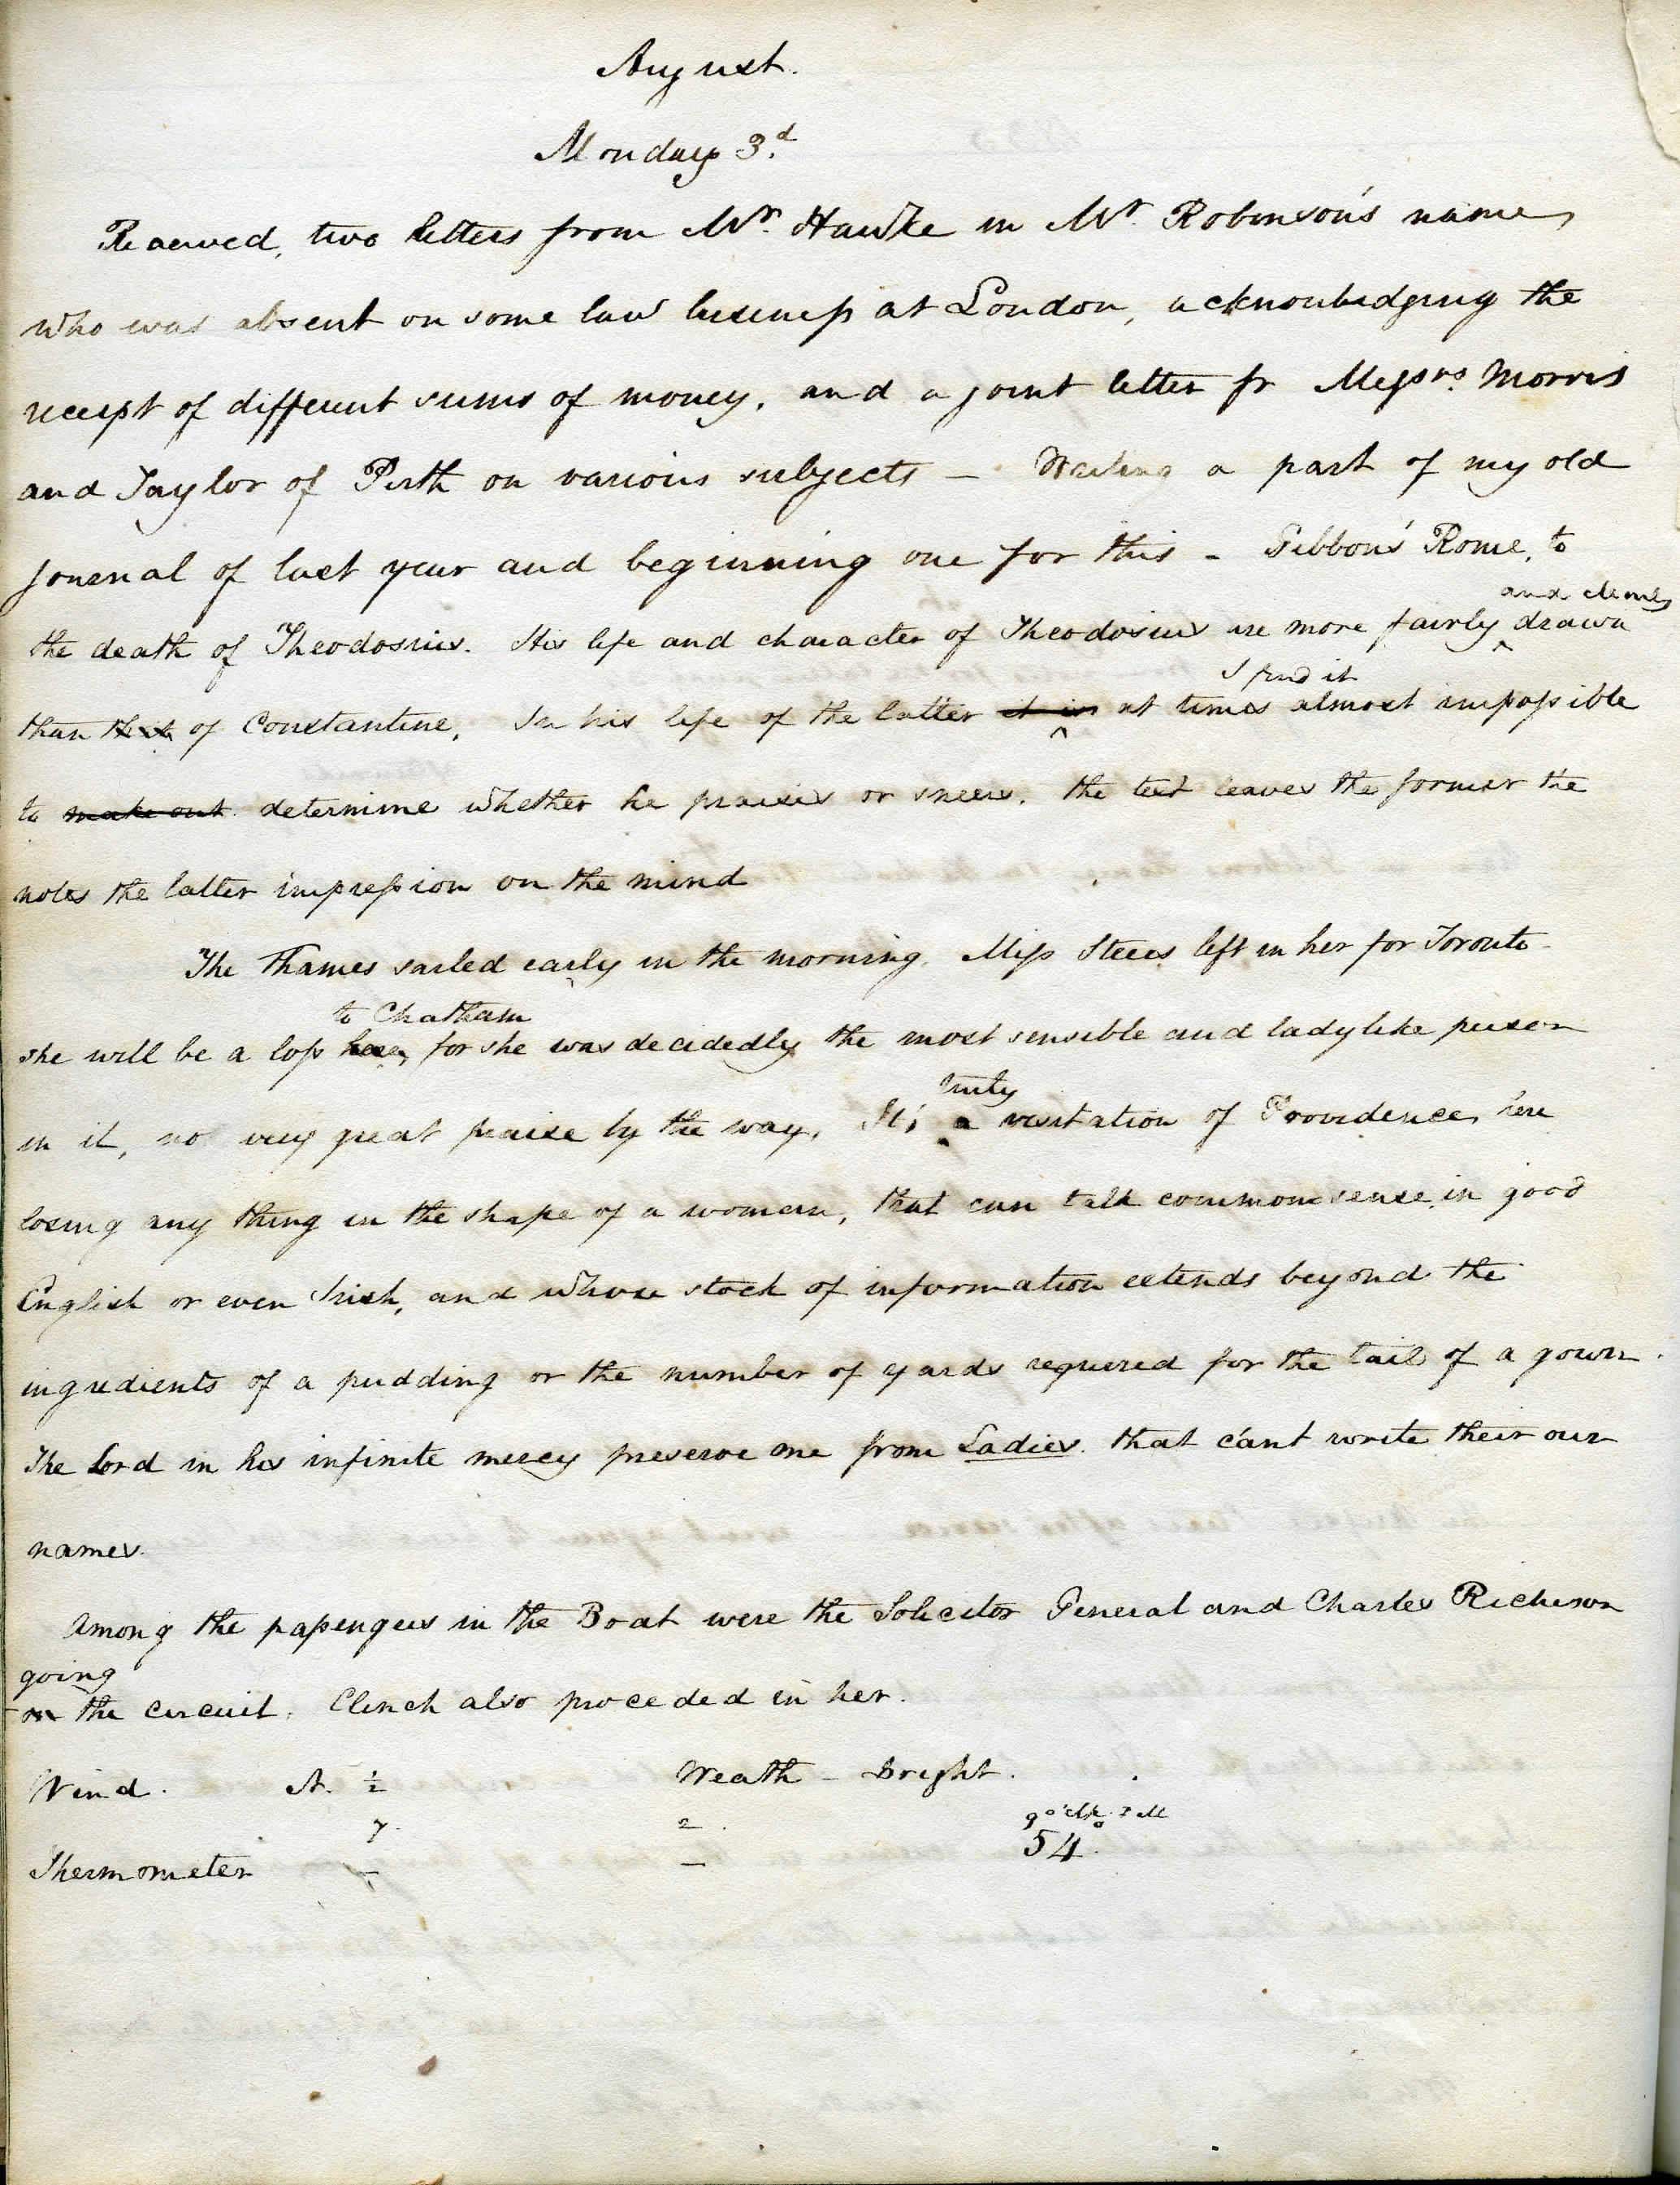 August.
Monday 3.d
Received, two letters from Mr. Hawke in Mr. Robinson's name,
who was absent on some law business at London, acknowledging the
receipt of different sums of money, and a joint letter fr Messrs. Morris
and Taylor of Perth on various subjects — Writing a part of my old
journal of last year and beginning one for this - Gibbon's Rome, to
the death of Theodosius. His life and character of Theodosius are more fairly and clearly drawn
than that of Constantine. In his life of the latter it is I find it at times almost impossible
to make out determine whether he praises or sneers. the text leaves the former the
notes the latter impression on the mind
The Thames sailed early in the morning. Miss Steers left in her for Toronto -
she will be a loss here, to Chatham for she was decidedly the most sensible and ladylike person
in it, no very great praise by the way. It's truly a visitation of Providence, here
losing any thing in the shape of a woman, that can talk common sense, in good
English or even Irish, and whose stock of information extends beyond the
ingredients of a pudding or the number of yards required for the tail of a gown.
The Lord in his infinite mercy preserve me from Ladies that can't write their own
names.
Among the passengers in the Boat were the Solicitor General and Charles Richison
going on the circuit. Clinch also proceded in her.
Wind. N. ½ Weath - Bright.
7. 2. 9 o'Clk
Thermometer - - 54.